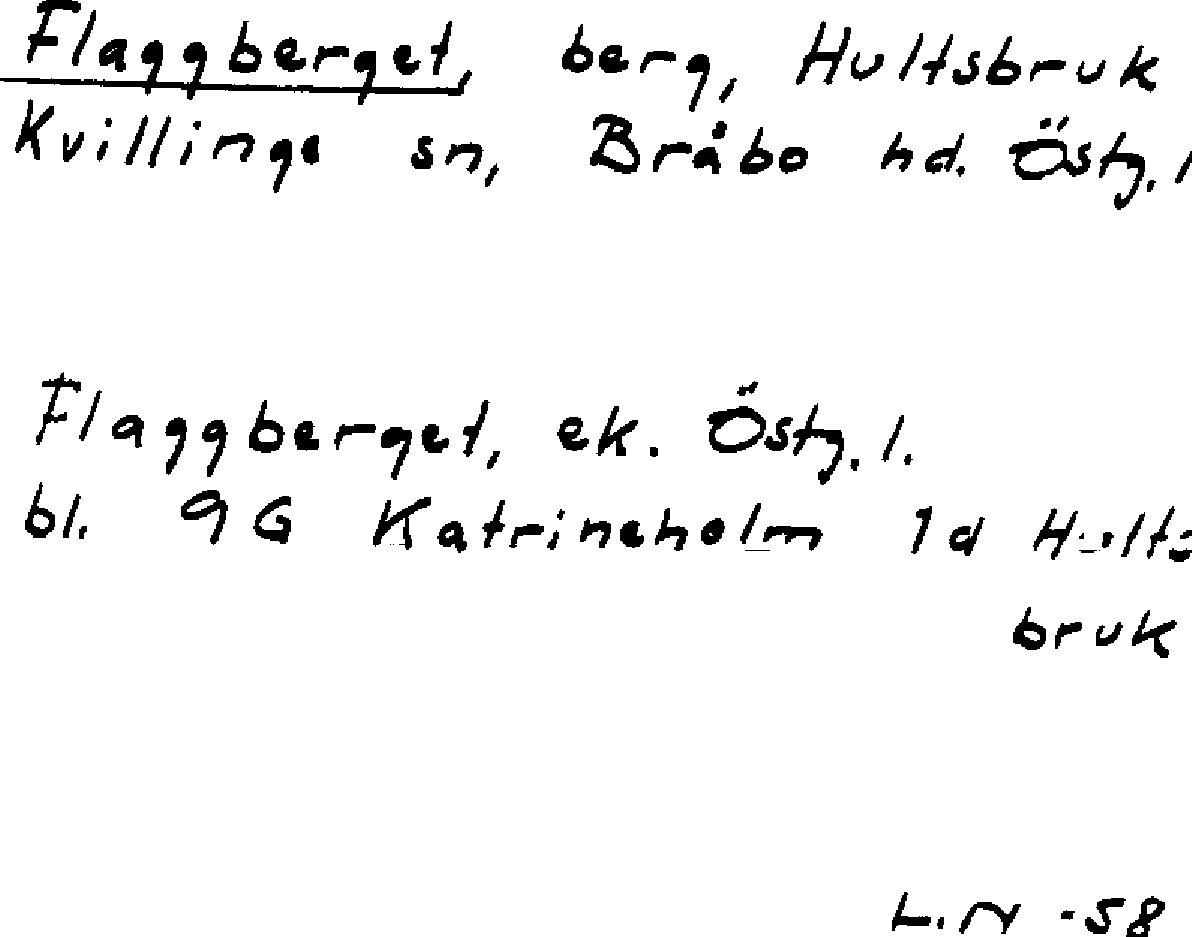 Flaggberget, berg, Hultsbruk
Kvillinge sn, Bråbo hd. Östg. l
Flaggberget, ek. Östg. l.
bl. 9G Katrineholm 1d Hults
bruk
L.N -58